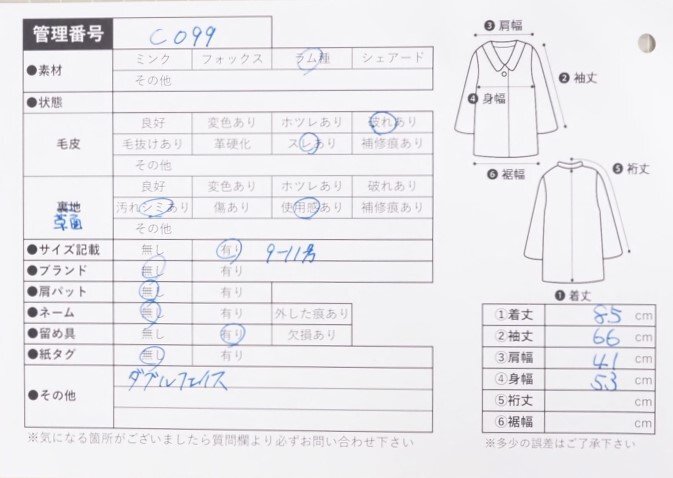 管理番号 C099
●素材 ミンク フォックス ラム種 シェアード
その他
●状態
毛皮 良好 変色あり ホツレあり 破れあり
毛抜けあり 革硬化 スレあり 補修痕あり
その他
裏地 良好 変色あり ホツレあり 破れあり
革面 汚れシミあり 傷あり 使用感あり 補修痕あり
その他
●サイズ記載 無し 有り 9-11号
●ブランド 無し 有り
●肩パット 無し 有り
●ネーム 無し 有り 外した痕あり
●留め具 無し 有り 欠損あり
●紙タグ 無し 有り
●その他 ダブルフェイス
※気になる箇所がございましたら質問欄より必ずお問い合わせ下さい
❸肩幅
❷袖丈
❹身幅
❻裾幅
❺裄丈
❶着丈
①着丈 85 cm
②袖丈 66 cm
③肩幅 41 cm
④身幅 53 cm
⑤裄丈 cm
⑥裾幅 cm
※多少の誤差はご了承下さい